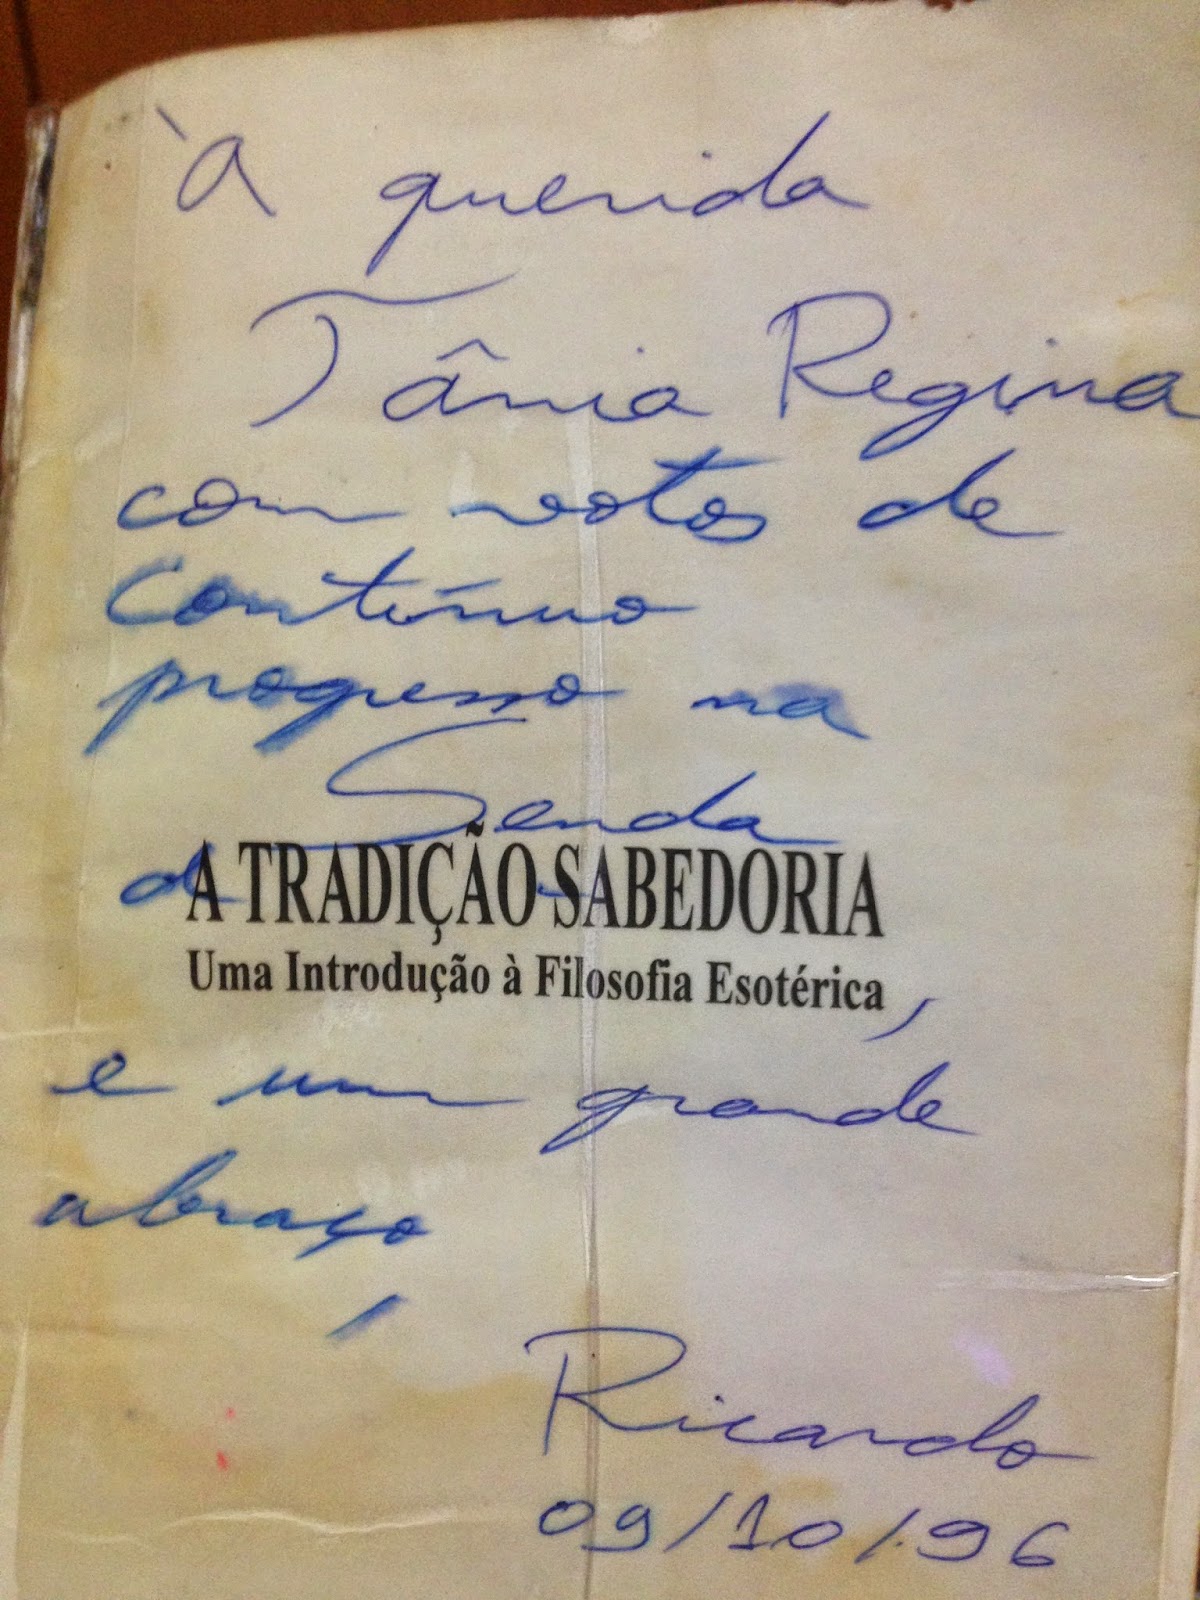 À querida
Tânia Regina
com votos de
contínuo
progresso na
Senda
d
A TRADIÇÃO-SABEDORIA
Uma Introdução à Filosofia Esotérica,
e um grande
abraço,
Ricardo
09/10/96